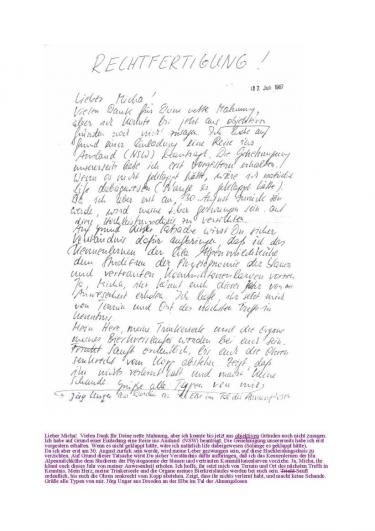 RECHTFERTIGUNG!
03. Juli 1987
Lieber Micha!
Vielen Dank für Deine nette Mahnung,
aber ich konnte bis jetzt aus objektiven
Gründen noch nicht zusagen. Ich habe auf
Grund einer Einladung eine Reise ins
Ausland (NSW) beantragt. Die Genehmigung
unsererseits habe ich erst vorgestern erhalten.
Wenn es nicht geklappt hätte, wäre ich natürlich
life dabeigewesen (Solange es geklappt hätte).
Da ich aber erst am 30. August zurück sein
werde, wird meine Leber gezwungen sein, auf
diese Hochleistungsdosis zu verzichten.
Auf Grund dieser Tatsache wirst Du sicher
Verständnis dafür aufbringen, daß ich das
Kennenlernen der lila Alpenmilchkühe
dem Studieren der Physiognomie der blauen
und vertrauten Kommilitonenlarven vorziehe.
Ja, Micha, ihr könnt euch dieses Jahr von meiner
Anwesenheit erholen. Ich hoffe, ihr setzt mich
von Termin und Ort des nächsten Treffs in
Kenntnis.
Mein Herz, meine Trinkerseele und die Organe
meines Bierkreislaufes werden bei euch sein.
Trinkt Sauft ordentlich, bis euch die Ohren
senkrecht vom Kopp abstehen. Zeigt, daß
ihr nichts verlernt habt und macht keine
Schande. Grüße alle Typen von mir.
Jörg Unger aus Dresden an der Elbe im Tal der Ahnungslosen
Lieber Micha! Vielen Dank für Deine nette Mahnung, aber ich konnte bis jetzt aus objektiven Gründen noch nicht zusagen.
Ich habe auf Grund einer Einladung eine Reise ins Ausland (NSW) beantragt. Die Genehmigung unsererseits habe ich erst
vorgestern erhalten. Wenn es nicht geklappt hätte, wäre ich natürlich life dabeigewesen (Solange es geklappt hätte).
Da ich aber erst am 30. August zurück sein werde, wird meine Leber gezwungen sein, auf diese Hochleistungsdosis zu
verzichten. Auf Grund dieser Tatsache wirst Du sicher Verständnis dafür aufbringen, daß ich das Kennenlernen der lila
Alpenmilchkühe dem Studieren der Physiognomie der blauen und vertrauten Kommilitonenlarven vorziehe. Ja, Micha, ihr
könnt euch dieses Jahr von meiner Anwesenheit erholen. Ich hoffe, ihr setzt mich von Termin und Ort des nächsten Treffs in
Kenntnis. Mein Herz, meine Trinkerseele und die Organe meines Bierkreislaufes werden bei euch sein. Trinkt Sauft
ordentlich, bis euch die Ohren senkrecht vom Kopp abstehen. Zeigt, dass ihr nichts verlernt habt, und macht keine Schande.
Grüße alle Typen von mir. Jörg Unger aus Dresden an der Elbe im Tal der Ahnungslosen